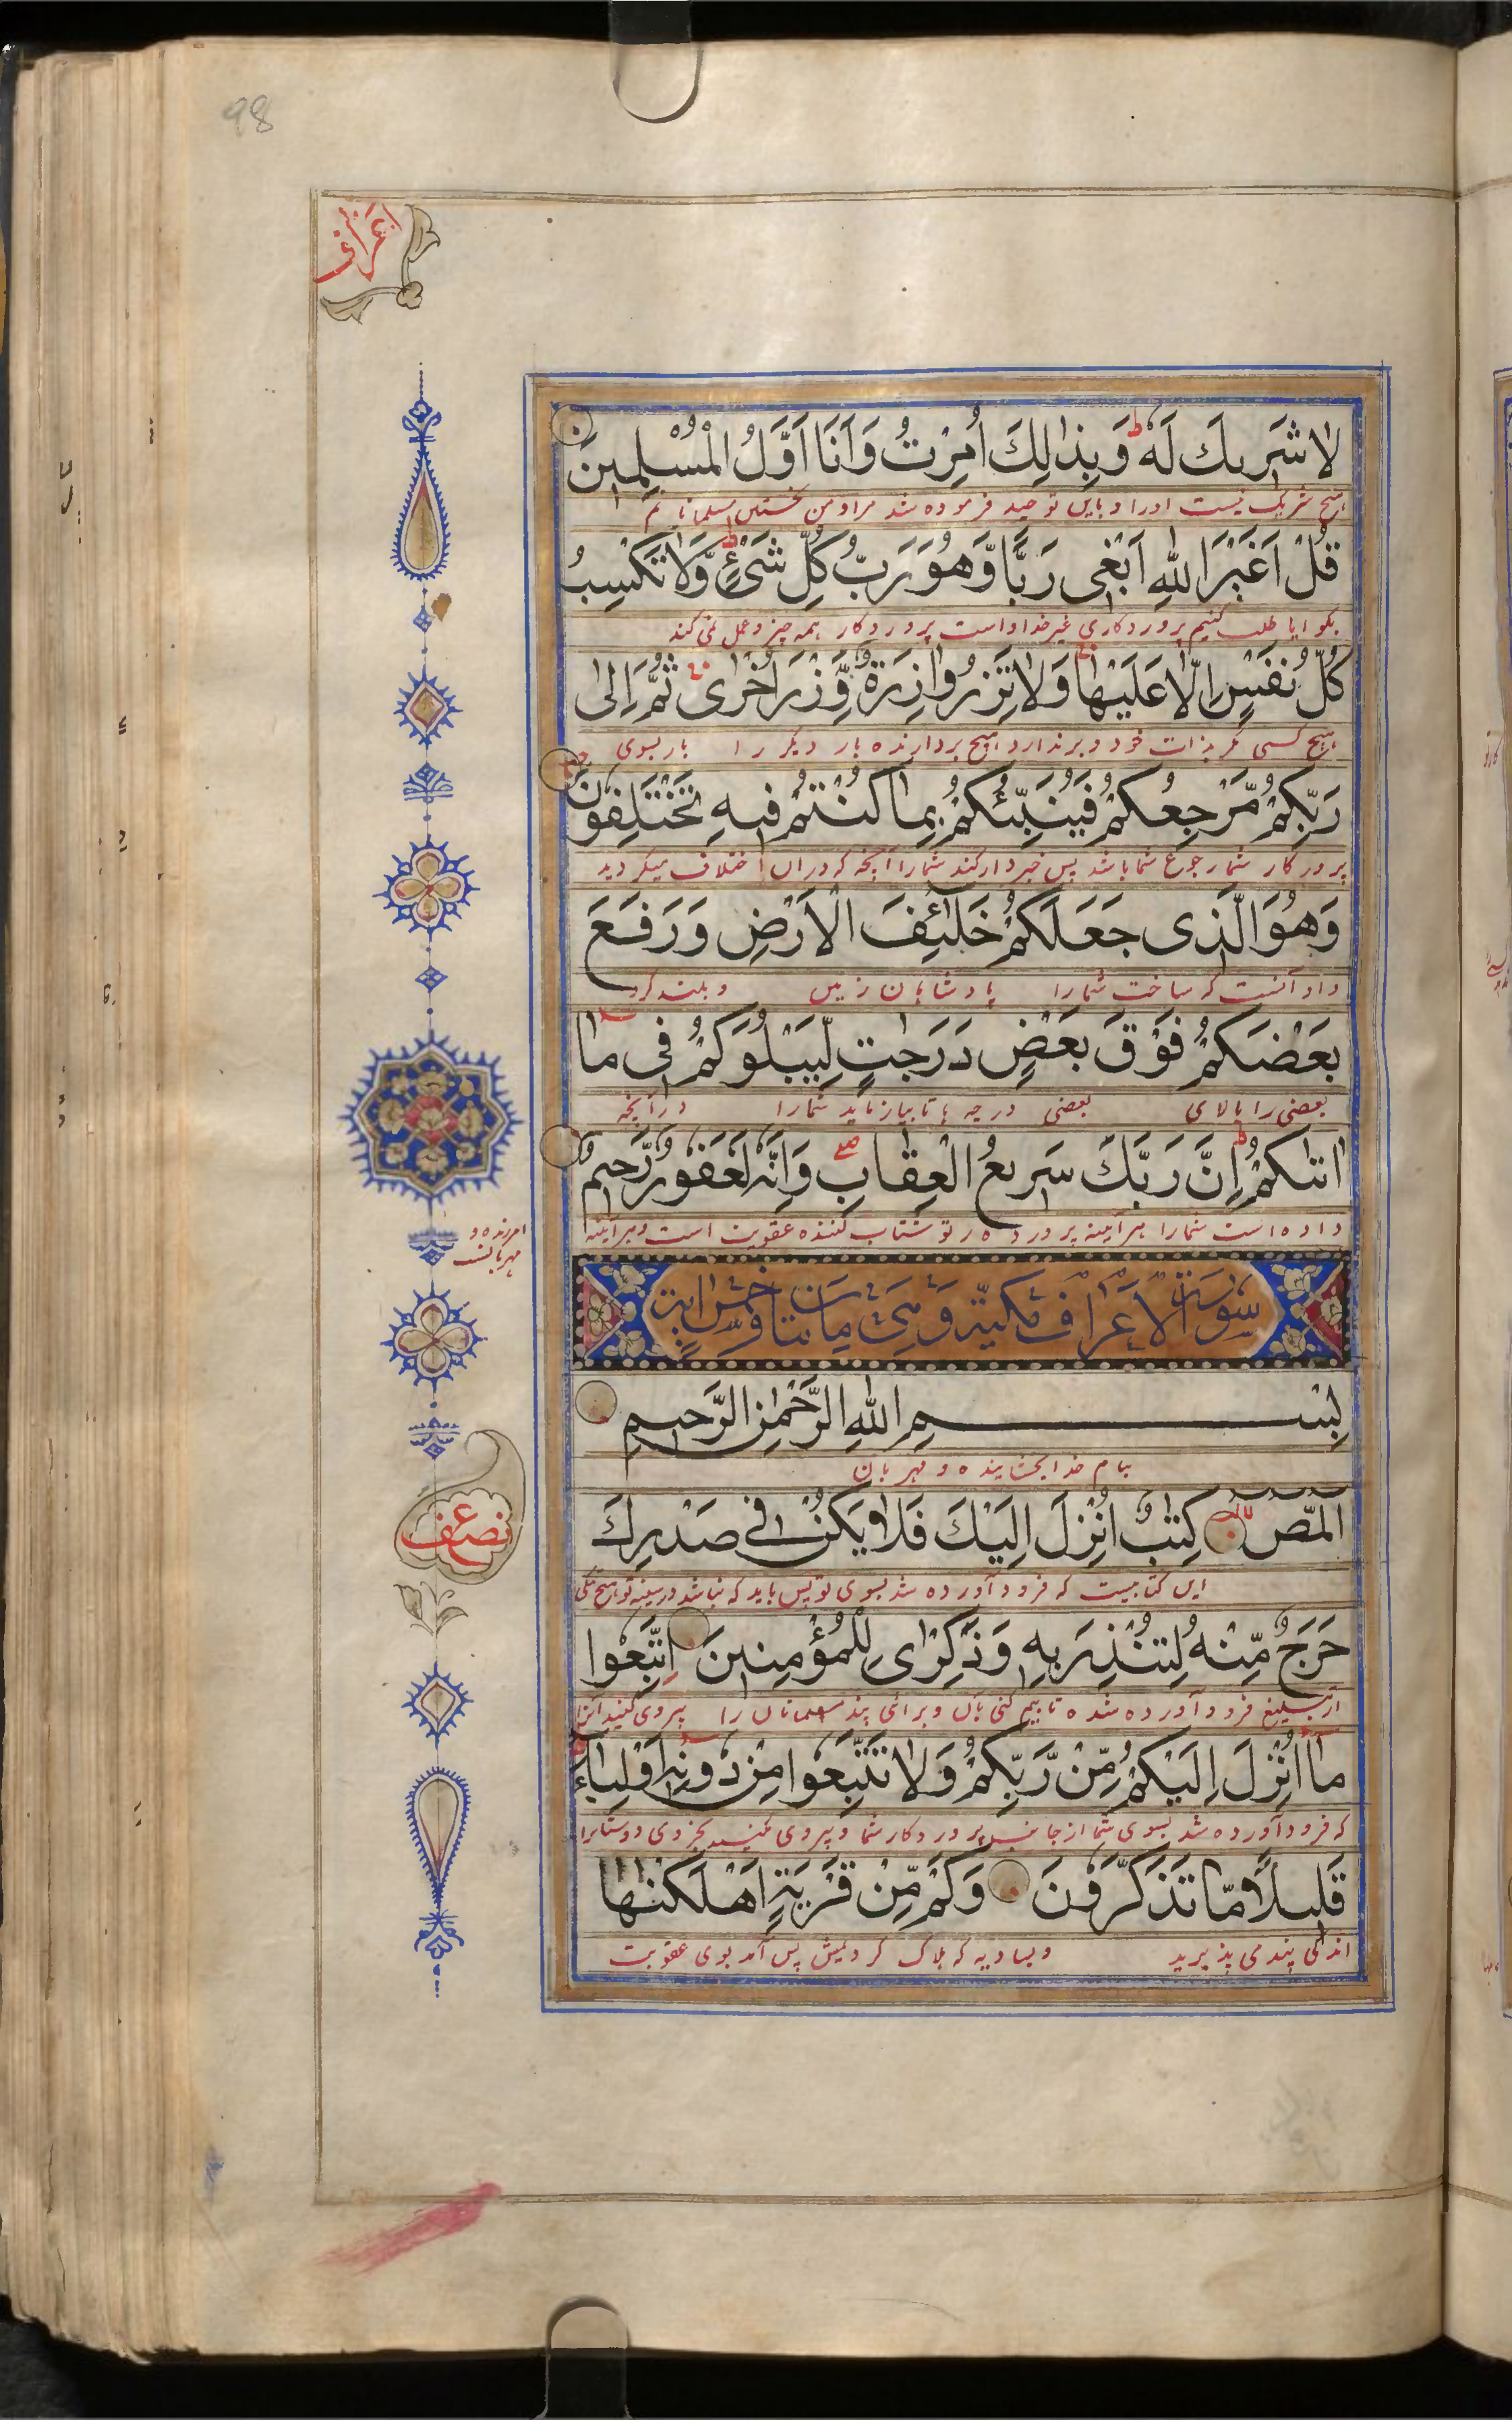 98
اعراف
لا شريك له وبذلك امرت وانا اول المسلمين
هیچ شریک نیست اورا و باین توحید فرموده شد مرا و من نخستین مسلمانانم
قل اغير الله ابغى ربا وهو رب كل شىء ولا تكسب
بگو ایا طلب کنیم پروردگاری غیر خدا و اوست پروردگار همه چیز و عمل نمی کند
كل نفس الا عليها ولا تزر وازرة وزر اخرى ثم الى
هیچ کسی مگر بذات خود و برندارد هیچ بردارنده بار دیگر را باز بسوی
ربكم مرجعكم فينبئكم بما كنتم فيه تختلفون
پروردگار شما رجوع شما باشد پس خبردار کند شما را آنچه که دران اختلاف میکردید
وهو الذى جعلكم خلئف الارض ورفع
و او آنست که ساخت شما را پادشاهان زمین و بلند کرد
بعضكم فوق بعض درجت ليبلوكم فى ما
بعضی را بالای بعضی درجه ها تا بیازماید شما را درآنچه
اتىكم ان ربك سريع العقاب وانه لغفور رحيم
داده است شما را هر آیینه پرورده ر تو شتاب کننده عقوبت است و هر آیینه
امرزنده و
مهربانست
سورة الاعراف مكية وهى مائتا وخمس اية
بسم الله الرحمن الرحيم
بنام خدا بخشاینده و مهربان
المص كتب انزل اليك فلا يكن فى صدرك
نصف
این کتابیست که فرود آورده شد بسوی تو پس باید که نباشد در سینه تو هیچ تنگی
حرج منه لتنذر به وذكرى للمؤمنين اتبعوا
از تبلیغ فرود آورده شده تا بیم کنی بآن و برای پند مسلمانان را پیروی کنید آنرا
ما انزل اليكم من ربكم ولا تتبعوا من دونه اولياء
که فرود آورده شد بسوی شما از جانب پروردکار شما و پیروی مکنید بجز وی دوستانرا
قليلا ما تذكرون وكم من قرية اهلكنها
اندکی پند می پذیرید و بسا دیه که هلاک کردیمش پس آمد بوی عقوبت